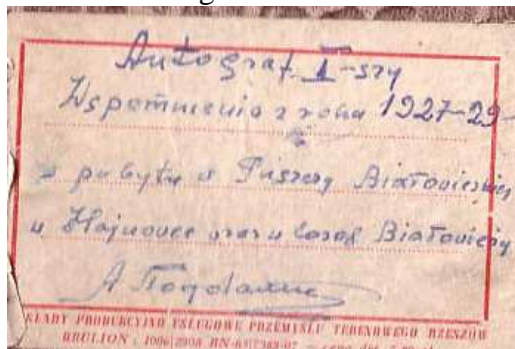 Autograf. I-szy
Wspomnienia z roku 1927-29-
z pobytu w Puszczy Białowieskiej
w Hajnówce oraz w Białowieży
A
KŁADY PRODUKCYJNO USŁUGOWE PRZEMYSŁU TERENOWEGO RZESZÓW
BRULION